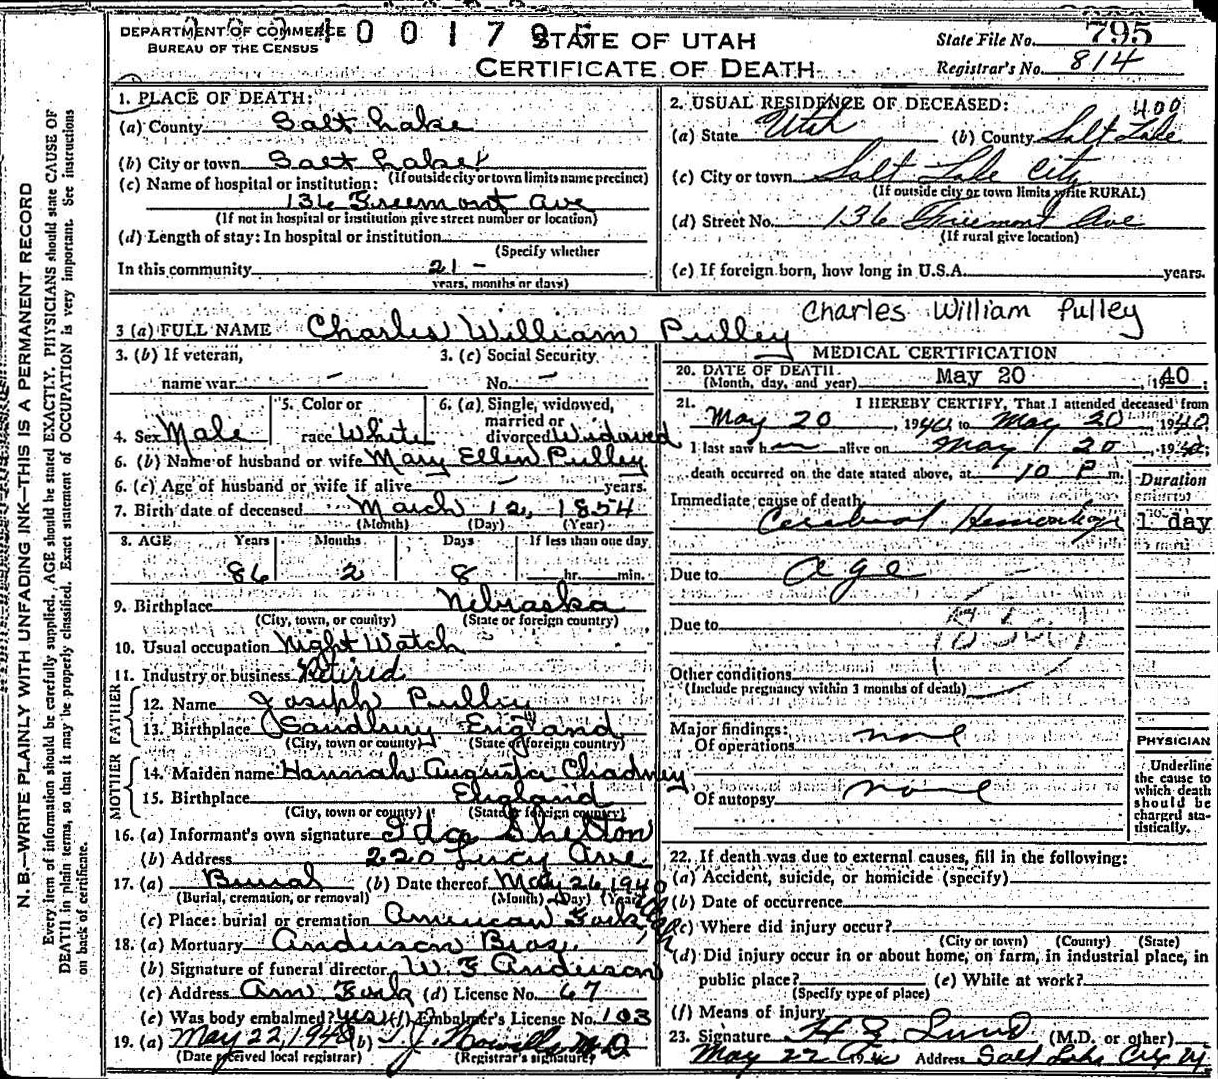 DEPARTMENT OF COMMERCE
BUREAU OF THE CENSUS
STATE OF UTAH
CERTIFICATE OF DEATH
State File No. 795
Registrar's No. 814
1. PLACE OF DEATH:
(a) County Salt Lake
(b) City or town Salt Lake
(If outside city or town limits name precinct)
(c) Name of hospital or institution:
136 Freemont Ave
(If not in hospital or institution give street number or location)
(d) Length of stay: In hospital or institution
(Specify whether
In this community 21 -
years, months or days)
2. USUAL RESIDENCE OF DECEASED: 400
(a) State Utah (b) County Salt Lake
(c) City or town Salt Lake City
(If outside city or town limits write RURAL)
(d) Street No. 136 Freemont Ave
(If rural give location)
(e) If foreign born, how long in U.S.A. years.
3 (a) FULL NAME Charles William Pulley
Charles William Pulley
3. (b) If veteran,
name war -
3. (c) Social Security
No. -
4. Sex Male
5. Color or
race White
6. (a) Single, widowed,
married or
divorced Widowed
6. (b) Name of husband or wife Mary Ellen Pulley
6. (c) Age of husband or wife if alive - years.
7. Birth date of deceased March 12, 1854
(Month) (Day) (Year)
8. AGE Years Months Days If less than one day
86 2 8 hr. min.
9. Birthplace Nebraska
(City, town, or county) (State or foreign country)
10. Usual occupation Night Watch
11. Industry or business Retired
FATHER
12. Name Joseph Pulley
13. Birthplace Sandbury England
(City, town or county) (State or foreign country)
MOTHER
14. Maiden name Hannah Augusta Chadney
15. Birthplace England
(City, town or county) (State or foreign country)
16. (a) Informant's own signature Ida Shelton
(b) Address 220 Lucy Ave
17. (a) Burial (b) Date thereof May 26 1940
(Burial, cremation, or removal) (Month) (Day) (Year)
(c) Place: burial or cremation American Fork, Utah
18. (a) Mortuary Anderson Bros.
(b) Signature of funeral director W F Anderson
(c) Address Am Fork (d) License No. 67
(e) Was body embalmed? yes (f) Embalmer's License No. 103
19. (a) May 22, 1940 (b) M.D.
(Date received local registrar) (Registrar's signature)
MEDICAL CERTIFICATION
20. DATE OF DEATH
(Month, day, and year) May 20, 1940
21. I HEREBY CERTIFY, That I attended deceased from
May 20, 1940, to May 20 1940
I last saw h alive on May 20 1940;
death occurred on the date stated above, at 10 P m.
Duration
Immediate cause of death
Cerebral Hemorrhage 1 day
Due to age
Due to
Other conditions
(Include pregnancy within 3 months of death)
Major findings:
Of operations none
Of autopsy none
PHYSICIAN
Underline
the cause to
which death
should be
charged sta-
tistically.
22. If death was due to external causes, fill in the following:
(a) Accident, suicide, or homicide (specify)
(b) Date of occurrence
(c) Where did injury occur?
(City or town) (County) (State)
(d) Did injury occur in or about home, on farm, in industrial place, in
public place? (e) While at work?
(Specify type of place)
(f) Means of injury
23. Signature H J Lund (M.D. or other)
May 22 1940 Address Salt Lake City, Ut.
N. B.—WRITE PLAINLY WITH UNFADING INK—THIS IS A PERMANENT RECORD
Every item of information should be carefully supplied. AGE should be stated EXACTLY. PHYSICIANS should state CAUSE OF
DEATH in plain terms, so that it may be properly classified. Exact statement of OCCUPATION is very important. See instructions
on back of certificate.